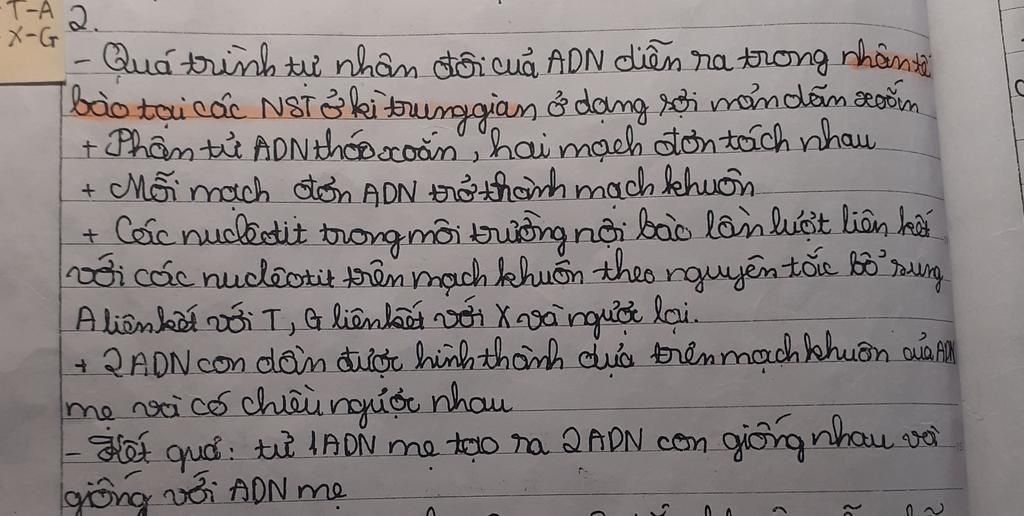 T-A
X-G
2.
- Quá trình tự nhân đôi của ADN diễn ra trong nhân tế
bào tại các NST ở kì trung gian ở dạng sợi mảnh dãn xoắn
+ Phân tử ADN tháo xoắn, hai mạch đơn tách nhau
+ Mỗi mạch đơn ADN trở thành mạch khuôn
+ Các nuclêôtit trong môi trường nội bào lần lượt liên kết
với các nuclêôtit trên mạch khuôn theo nguyên tắc bổ sung
A liên kết với T, G liên kết với X và ngược lại.
+ 2 ADN con dần được hình thành dựa trên mạch khuôn của ADN
mẹ và có chiều ngược nhau
- Kết quả: từ 1 ADN mẹ tạo ra 2 ADN con giống nhau và
giống với ADN mẹ